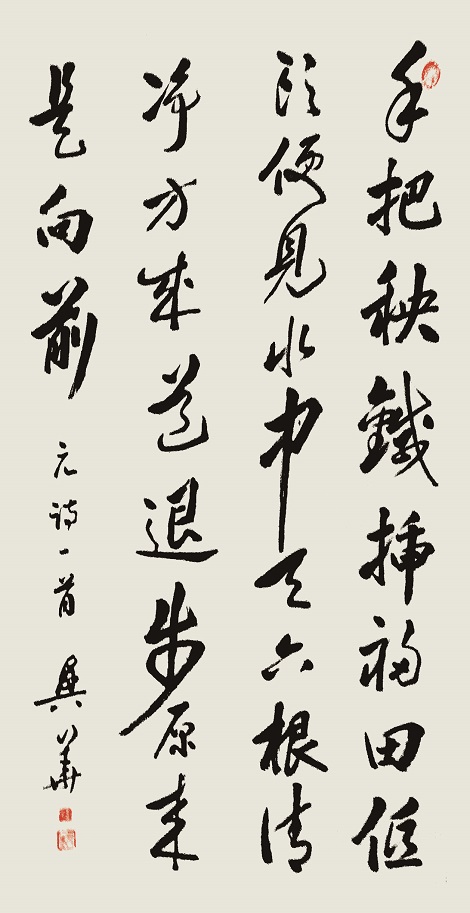 手把秧鍼插福田低
頭便見水中天六根清
淨方成道退步原來
是向前 元詩一首 華